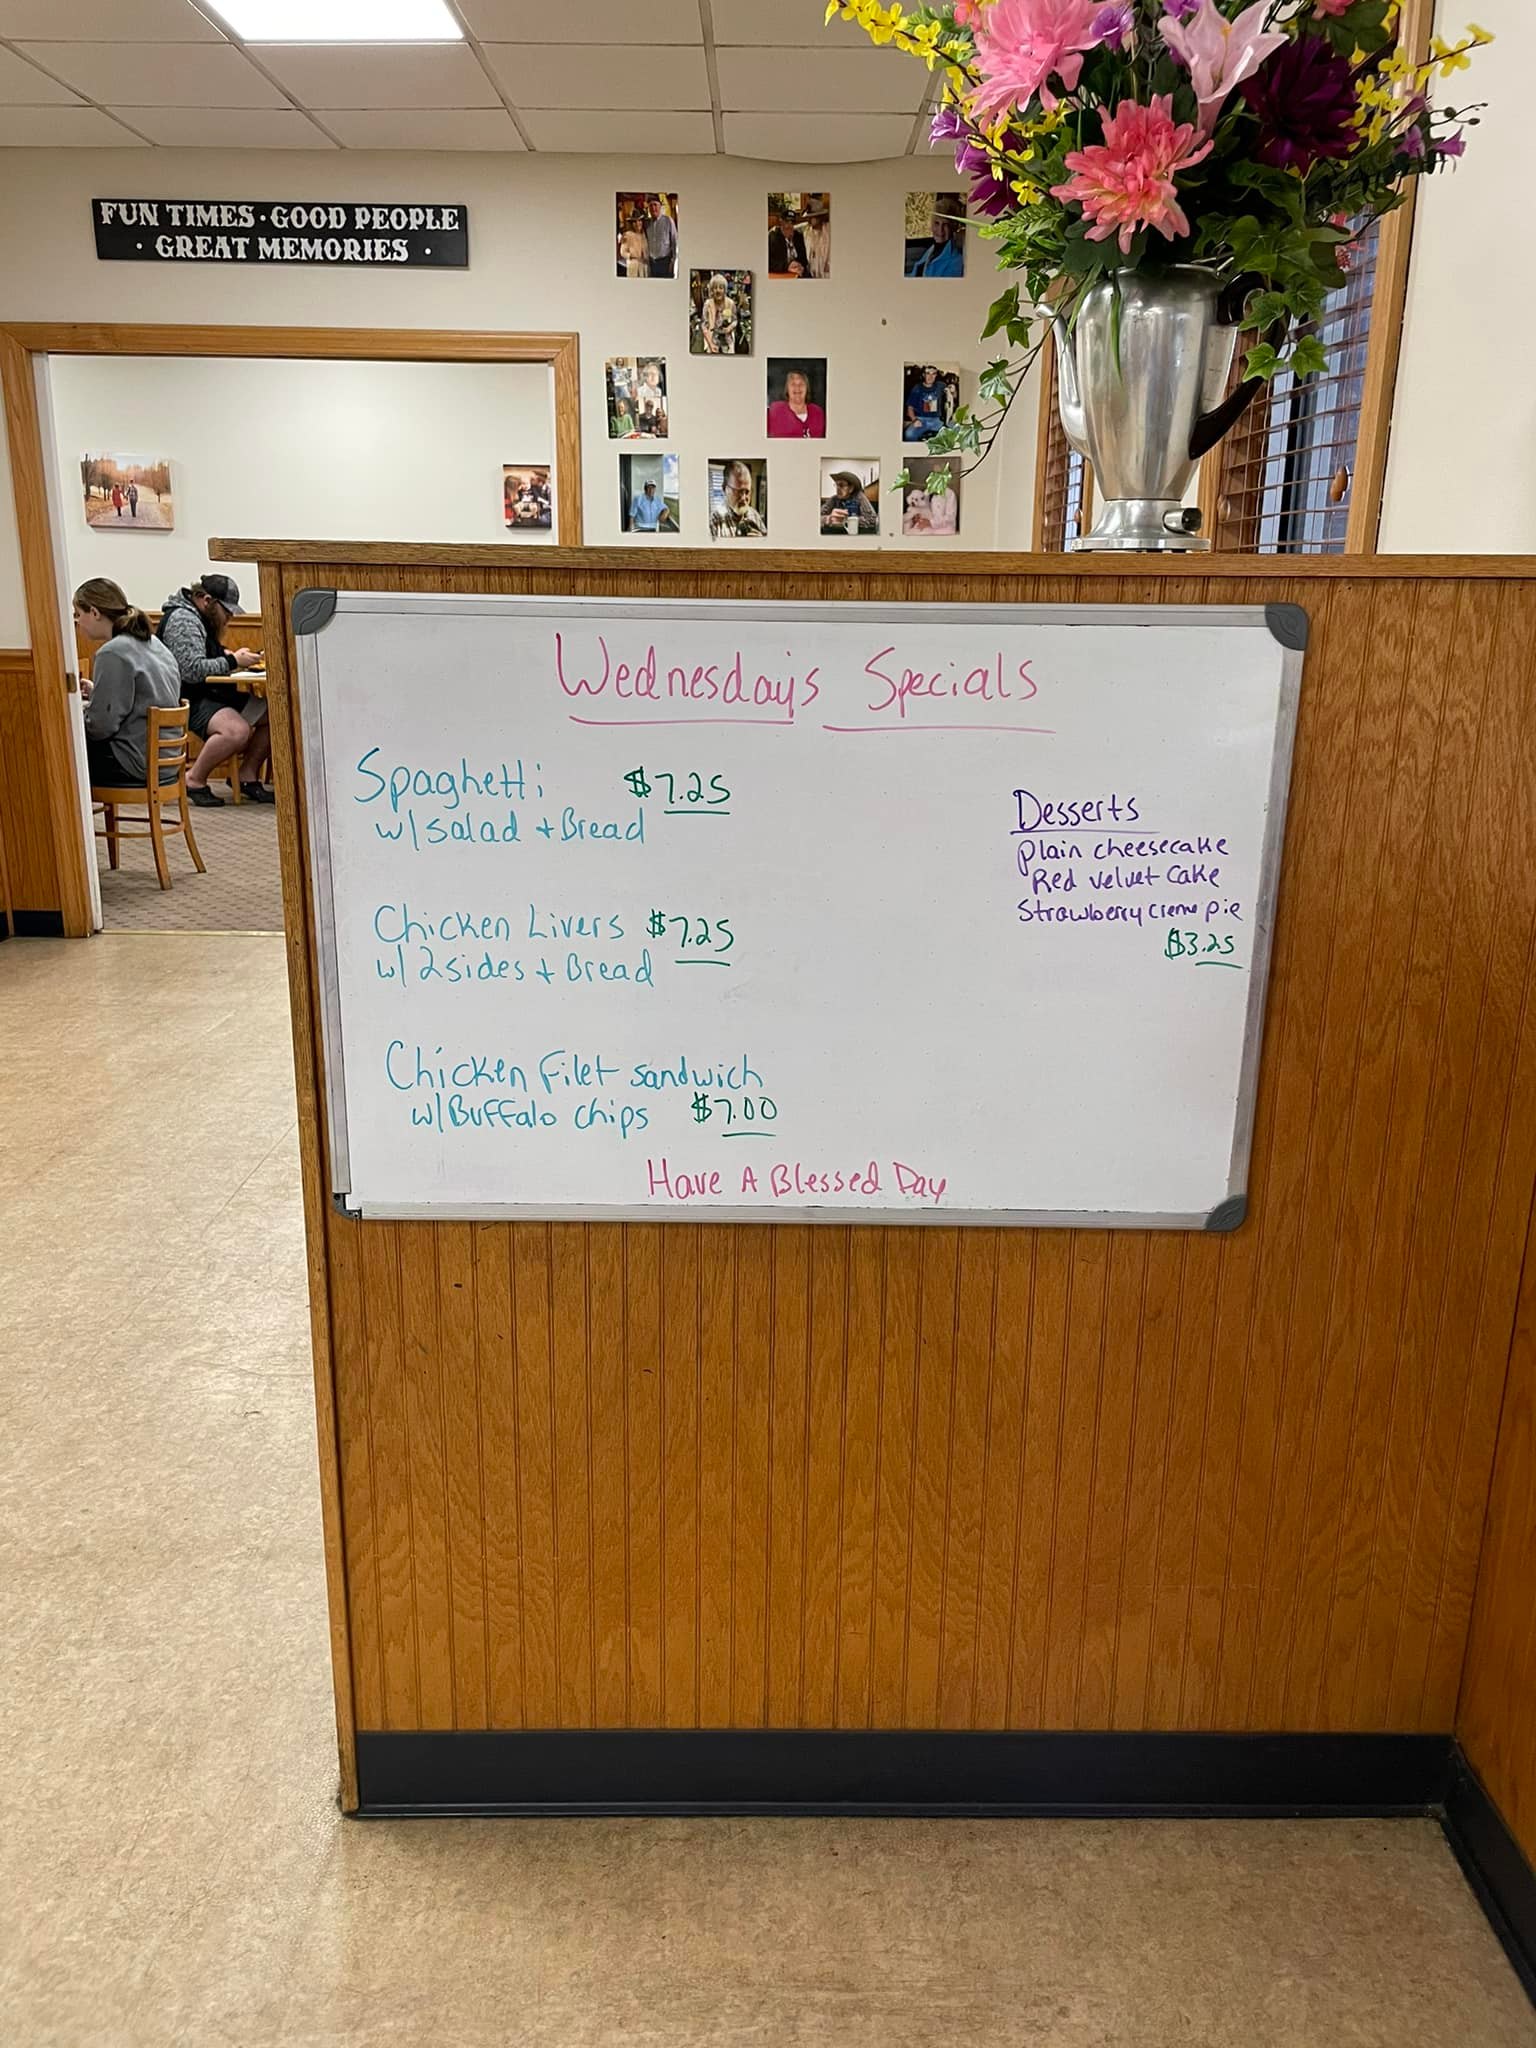 FUN TIMES · GOOD PEOPLE
· GREAT MEMORIES ·
Wednesday's Specials
Spaghetti $7.25
w/salad + Bread
Chicken Livers $7.25
w/2sides + Bread
Chicken Filet sandwich
w/Buffalo chips $7.00
Desserts
Plain cheesecake
Red velvet cake
Strawberry creme pie
$3.25
Have A Blessed Day